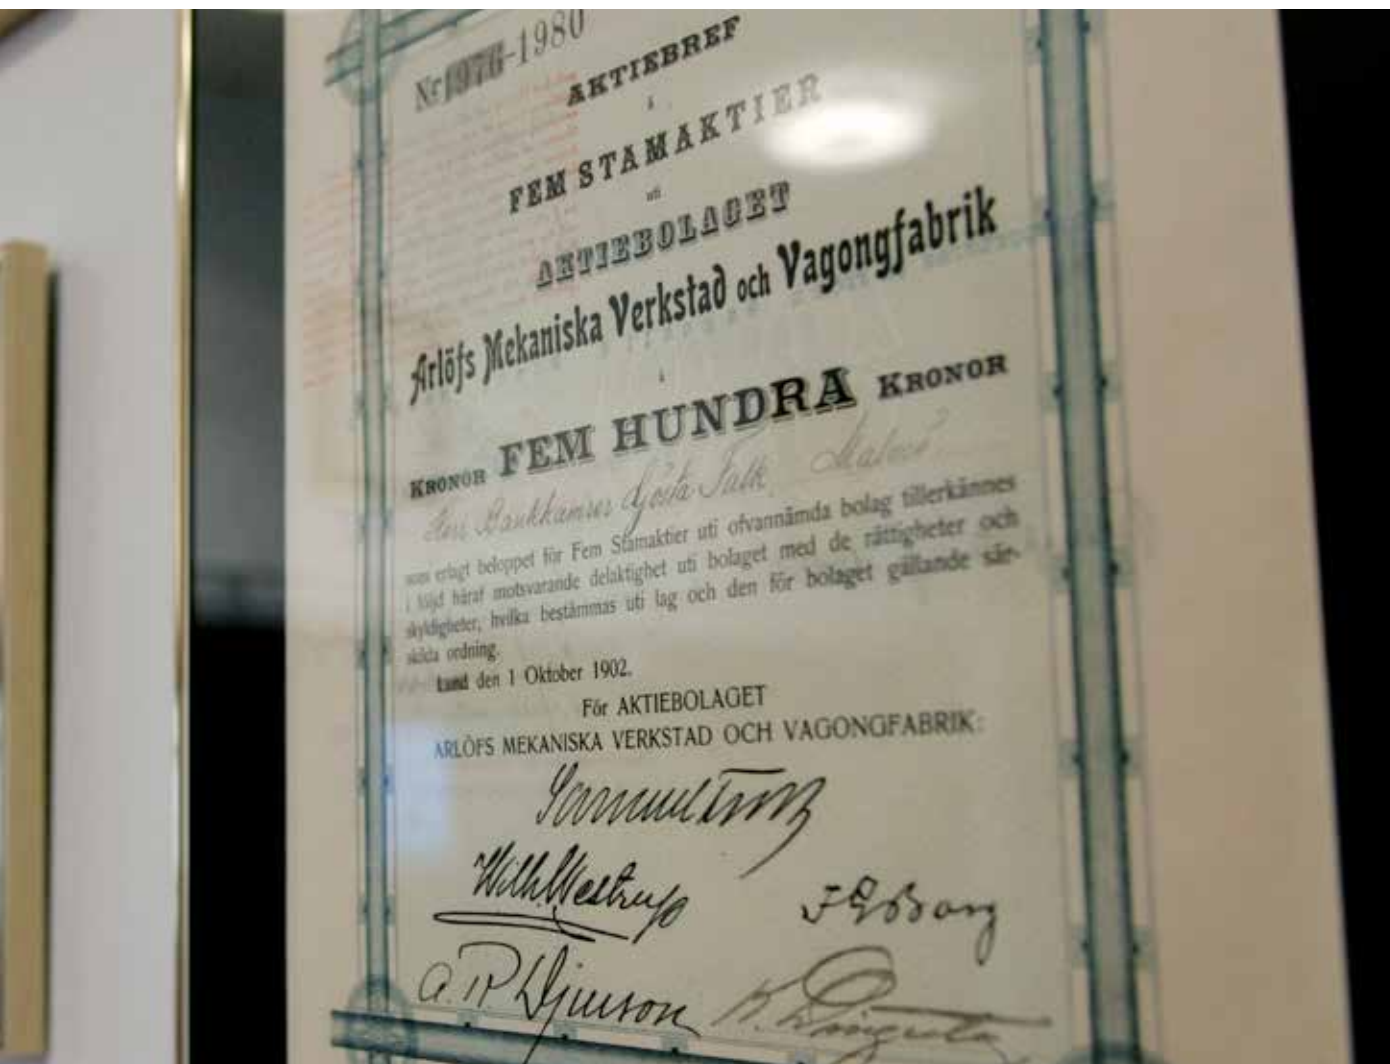 Nr 1976-1980
AKTIEBREF
å
FEM STAMAKTIER
uti
AKTIEBOLAGET
Arlöfs Mekaniska Verkstad och Vagongfabrik
å
KRONOR FEM HUNDRA KRONOR
Herr Gösta Falk, Malmö
som erlagt beloppet för Fem Stamaktier uti ofvannämda bolag tillerkännes
i följd häraf motsvarande delaktighet uti bolaget med de rättigheter och
skyldigheter, hvilka bestämmas uti lag och den för bolaget gällande sär-
skilda ordning.
Lund den 1 Oktober 1902.
För AKTIEBOLAGET
ARLÖFS MEKANISKA VERKSTAD OCH VAGONGFABRIK:
Samuel
Wilh. Westrup